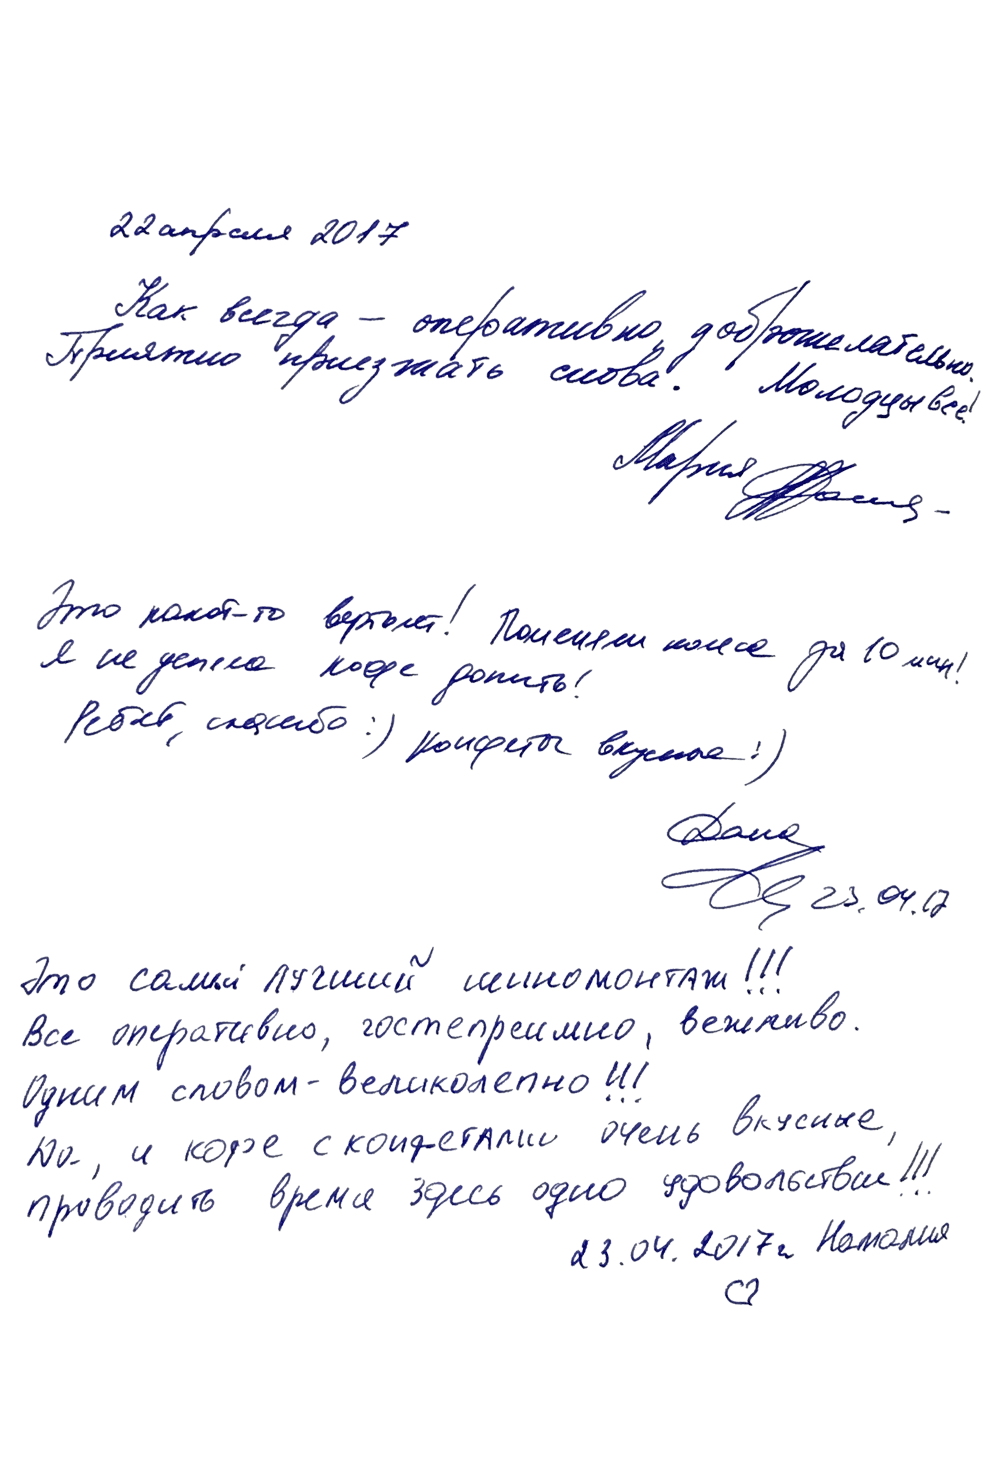 22 апреля 2017
Как всегда – оперативно, доброжелательно.
Приятно приезжать снова. Молодцы все!
Мария
Это какой-то вертолёт! Поменяли колеса за 10 мин!
Я не успела кофе допить!
Ребят, спасибо :) конфеты вкусные :)
Дана
23.04.17
Это самый ЛУЧШИЙ шиномонтаж!!!
Все оперативно, гостеприимно, вежливо.
Одним словом - великолепно!!!
Да, и кофе с конфетами очень вкусные,
проводить время здесь одно удовольствие!!!
23.04.2017г Наталия